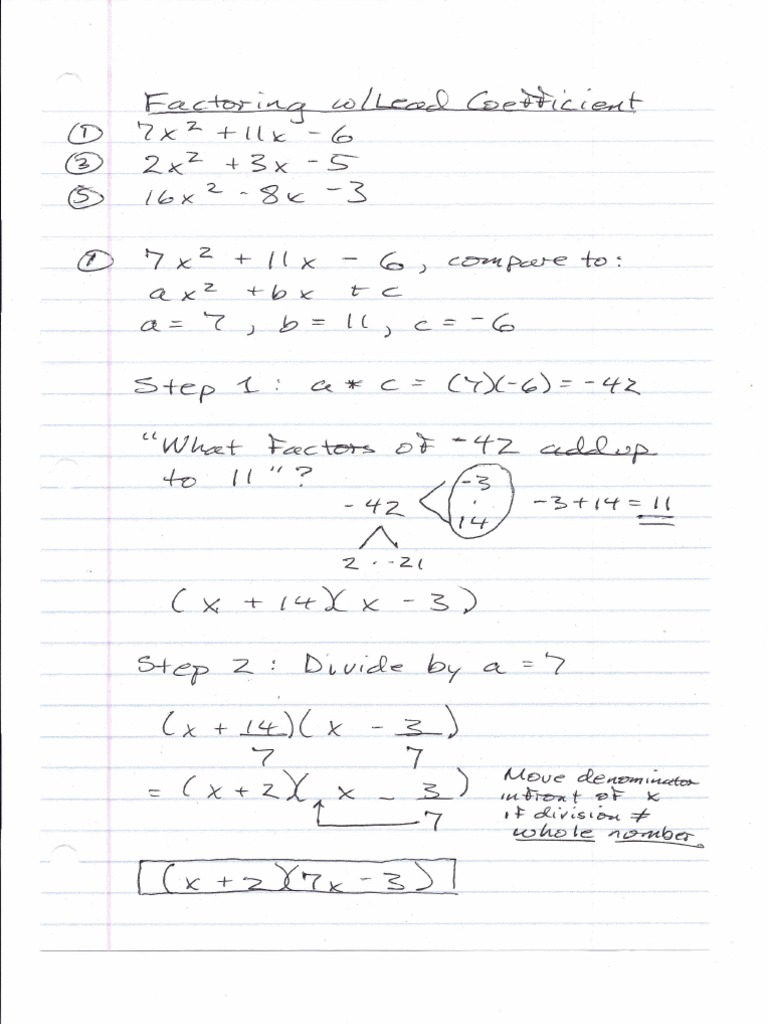 Factoring w/Lead Coefficient
① 7x² + 11x - 6
③ 2x² + 3x - 5
⑤ 16x² - 8x - 3
① 7x² + 11x - 6, compare to:
ax² + bx + c
a = 7, b = 11, c = -6
Step 1: a * c = (7)(-6) = -42
"What factors of -42 add up
to 11"?
-42 < -3 · 14 -3 + 14 = 11
2 · -21
(x + 14)(x - 3)
Step 2: Divide by a = 7
(x + 14/7)(x - 3/7)
= (x + 2)(x - 3/7)
Move denominator
infront of x
if division ≠
whole number.
(x + 2)(7x - 3)